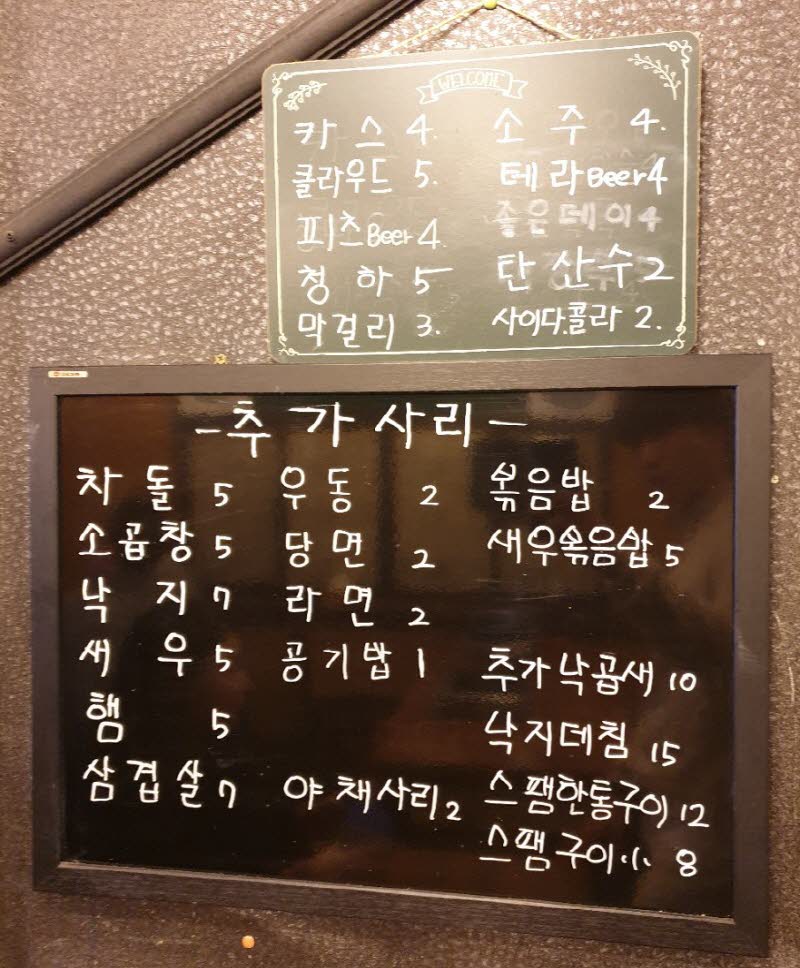 WELCOME
카스 4. 소주 4.
클라우드 5. 테라Beer 4
피츠Beer 4. 좋은데이 4
청하 5 탄산수 2
막걸리 3. 사이다.콜라 2.
-추가사리-
차돌 5 우동 2 볶음밥 2
소곱창 5 당면 2 새우볶음밥 5
낙지 7 라면 2
새우 5 공기밥 1 추가낙곱새 10
햄 5 낙지데침 15
삼겹살 7 야채사리 2 스팸한통구이 12
스팸구이小 8